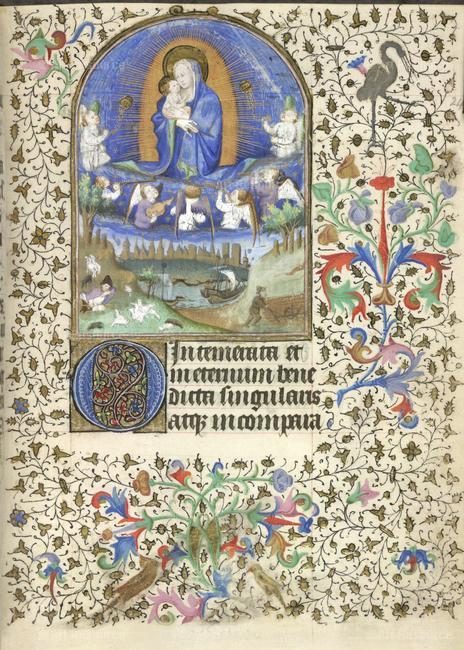 O Intemerata et
in eternum bene
dicta singularis
atqꝫ incompara